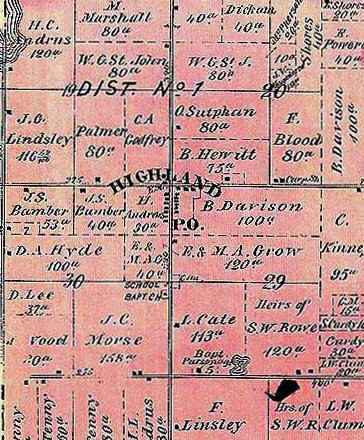 M.
Marshall
80a
40a
Dickm
40a
H.C.
drns
120a
W.G.St. John
80a
W.G.S.J.
80a
100
Shores
40a
E.
Powers
40a
19
DIST. No 1
20
J.G.
Lindsley
116
Palmer
80a
C.A
Godfrey
O.Sutphan
80a
B. Hewitt
75a
F.
Blood
80a
B. Davison
120a
HIGHLAND
P.O.
J.S.
Bamber
53a
J.S.
Bamber
40a
H.
Andrus
90a
B. Davison
100a
C.
Kinne
95a
D.A. Hyde
100a
30
E. &
M.A.G
40a
E. & M.A. Grow
120a
29
SCHOOL
BAPT. CH
D. Lee
37a
Vood
J.C.
Morse
158a
L. Cate
113a
Bapt.
Parsonage
5
Heirs of
S.W. Rowe
120a
15a
Curdy
30a
80a
F.
Linsley
Hrs. of
S.W.R.
L.W.
Clum